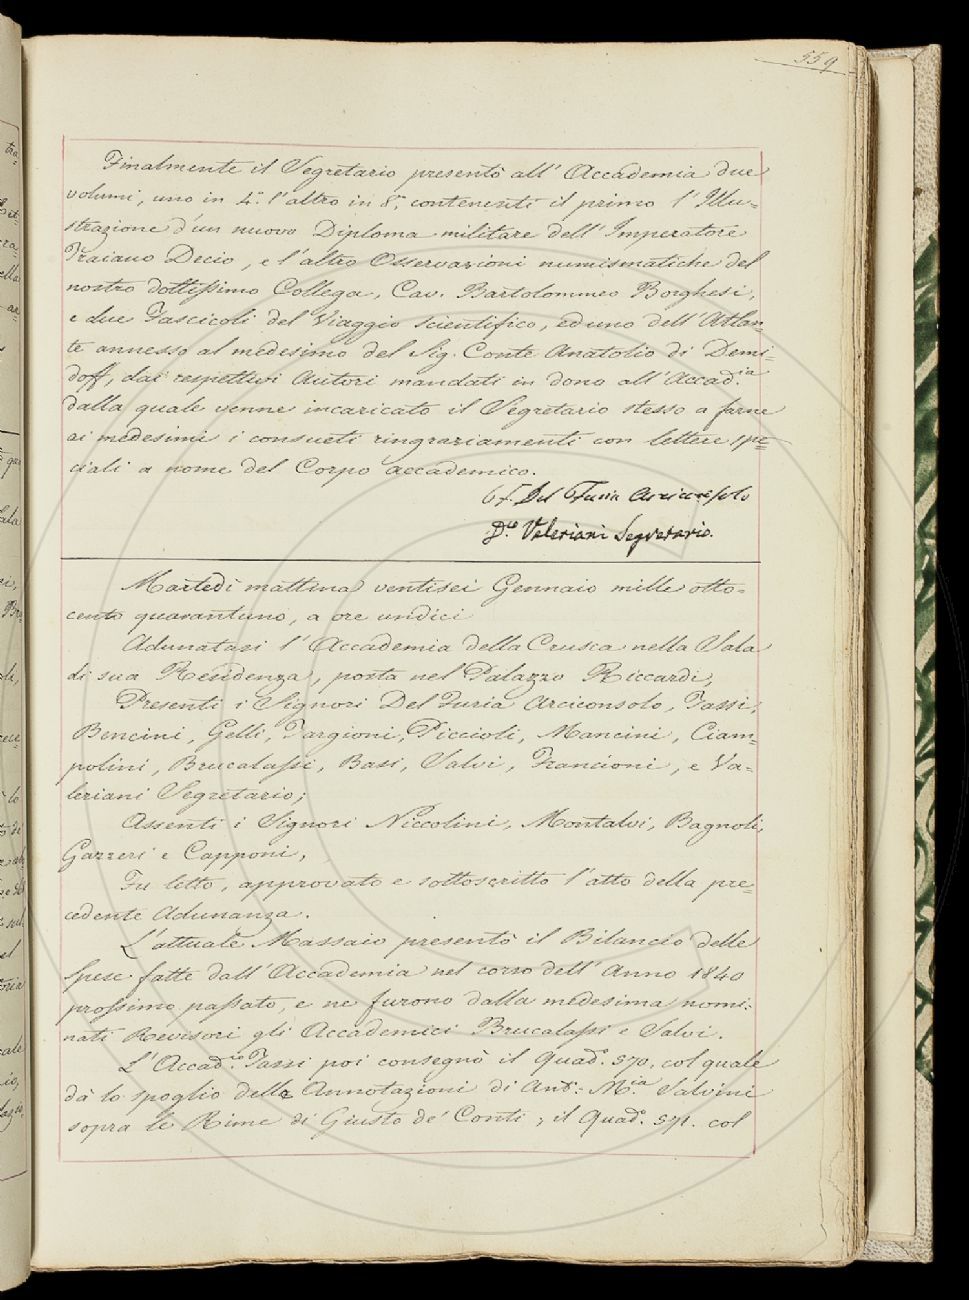 559
Finalmente il Segretario presentò all' Accademia due
volumi, uno in 4.º l'altro in 8.º contenenti il primo l'Illu=
strazione d'un nuovo Diploma militare dell'Imperatore
Traiano Decio, e l'altro Osservazioni numismatiche del
nostro dottissimo Collega, Cav. Bartolommeo Borghesi,
e due Fascicoli del Viaggio scientifico, ed uno dell'Atlan=
te annesso al medesimo del Sig. Conte Anatolio di Demi=
doff, dai respettivi Autori mandati in dono all'Accad.ia
dalla quale venne incaricato il Segretario stesso a farne
ai medesimi i consueti ringraziamenti con lettere spe=
ciali a nome del Corpo accademico.
F. Del Furia Arciconsolo
D.e Valeriani Segretario.
Martedì mattina ventisei Gennaio mille otto=
cento quarantuno, a ore undici
Adunatasi l'Accademia della Crusca nella Sala
di sua Residenza, posta nel Palazzo Riccardi,
Presenti i Signori Del Furia Arciconsolo, Tassi,
Bencini, Gelli, Targioni, Piccioli, Mancini, Ciam=
polini, Brucalassi, Basi, Salvi, Francioni, e Va=
leriani Segretario;
Assenti i Signori Niccolini, Montalvi, Bagnoli,
Gazzeri e Capponi,
Fu letto, approvato e sottoscritto l'atto della pre=
cedente Adunanza.
L'attuale Massaio presentò il Bilancio delle
Spese fatte dall'Accademia nel corso dell'Anno 1840
prossimo passato, e ne furono dalla medesima nomi=
nati Revisori gli Accademici Brucalassi e Salvi.
L'Accad.co Tassi poi consegnò il Quad.º 570, col quale
dà lo spoglio delle Annotazioni di Ant: M.ia Salvini
sopra le Rime di Giusto de' Conti; il Quad.º 571. col